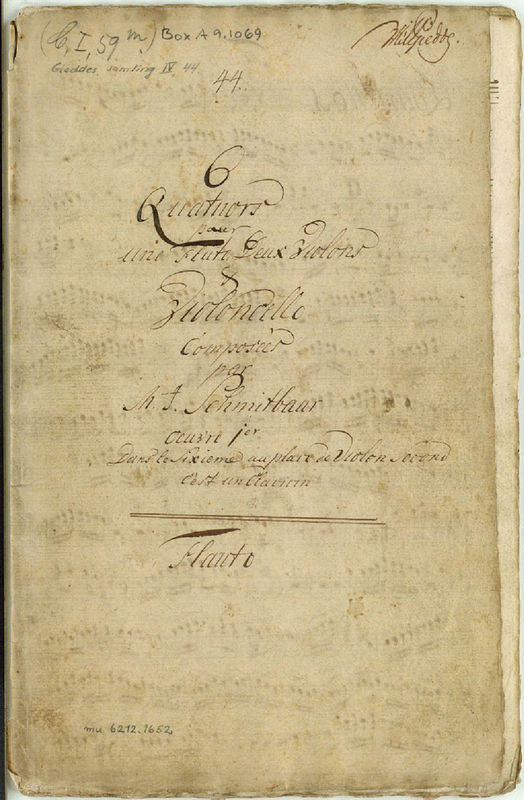 (C, I, 59 m.) Box A 9.1069
Gieddes samling IV 44.
WHRGiedde.
44.
6
Quatuors
pour
une Fluto Deux Violons
&
Violoncelle
Composées
par
M. J. Schmitbaur
œuvre 1er
Dans le Sixieme au place de Violon Second
c'est un Clavicin
Flauto
mu 6212.1652